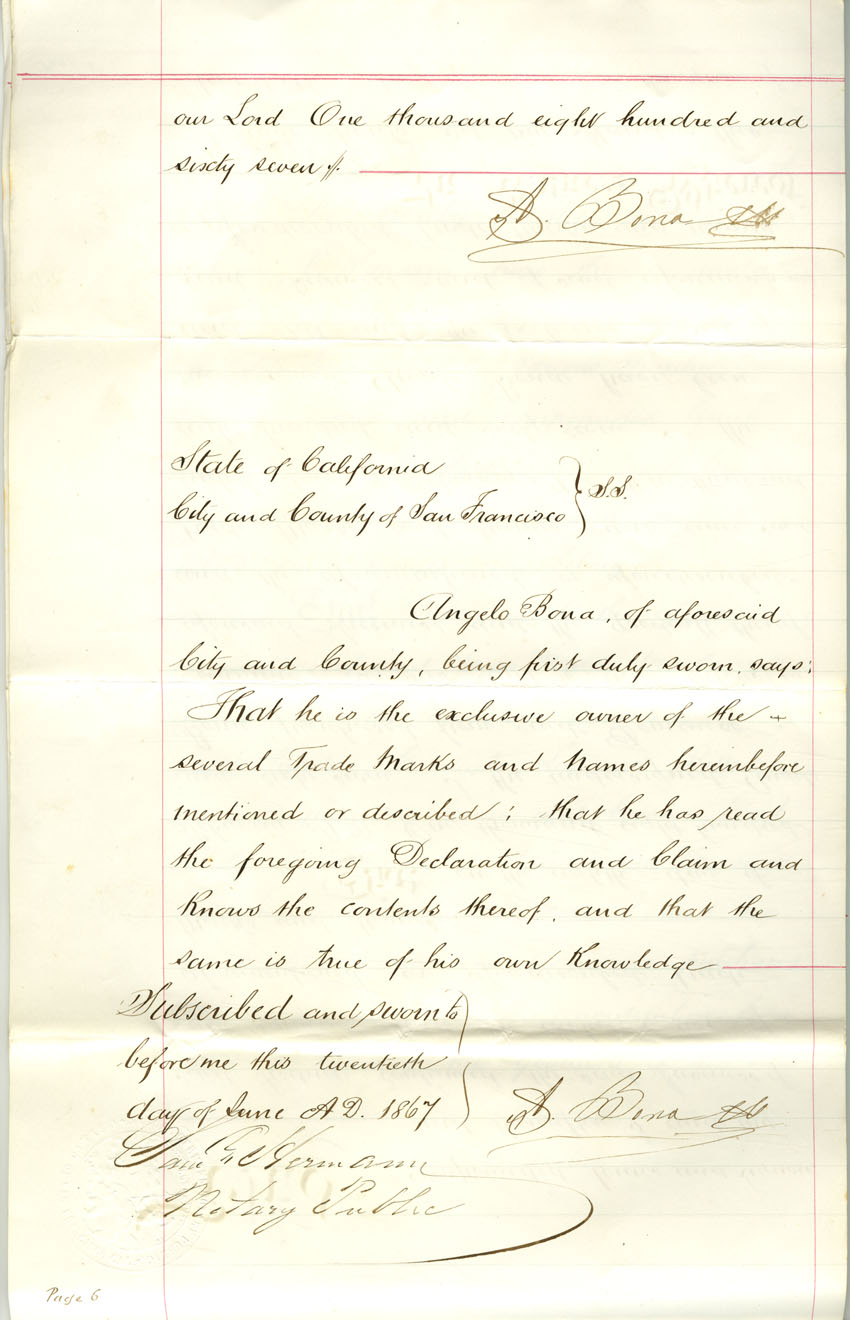 our Lord One thousand eight hundred and
sixty seven
A. Bona
State of California
City and County of San Francisco } S.S.
Angelo Bona, of aforesaid
City and County, being first duly sworn, says:
That he is the exclusive owner of the
several Trade Marks and Names hereinbefore
mentioned or described; that he has read
the foregoing Declaration and Claim and
Knows the contents thereof, and that the
same is true of his own Knowledge
Subscribed and sworn to
before me this twentieth
day of June A.D. 1867
A. Bona
Hermann
Notary Public
Page 6